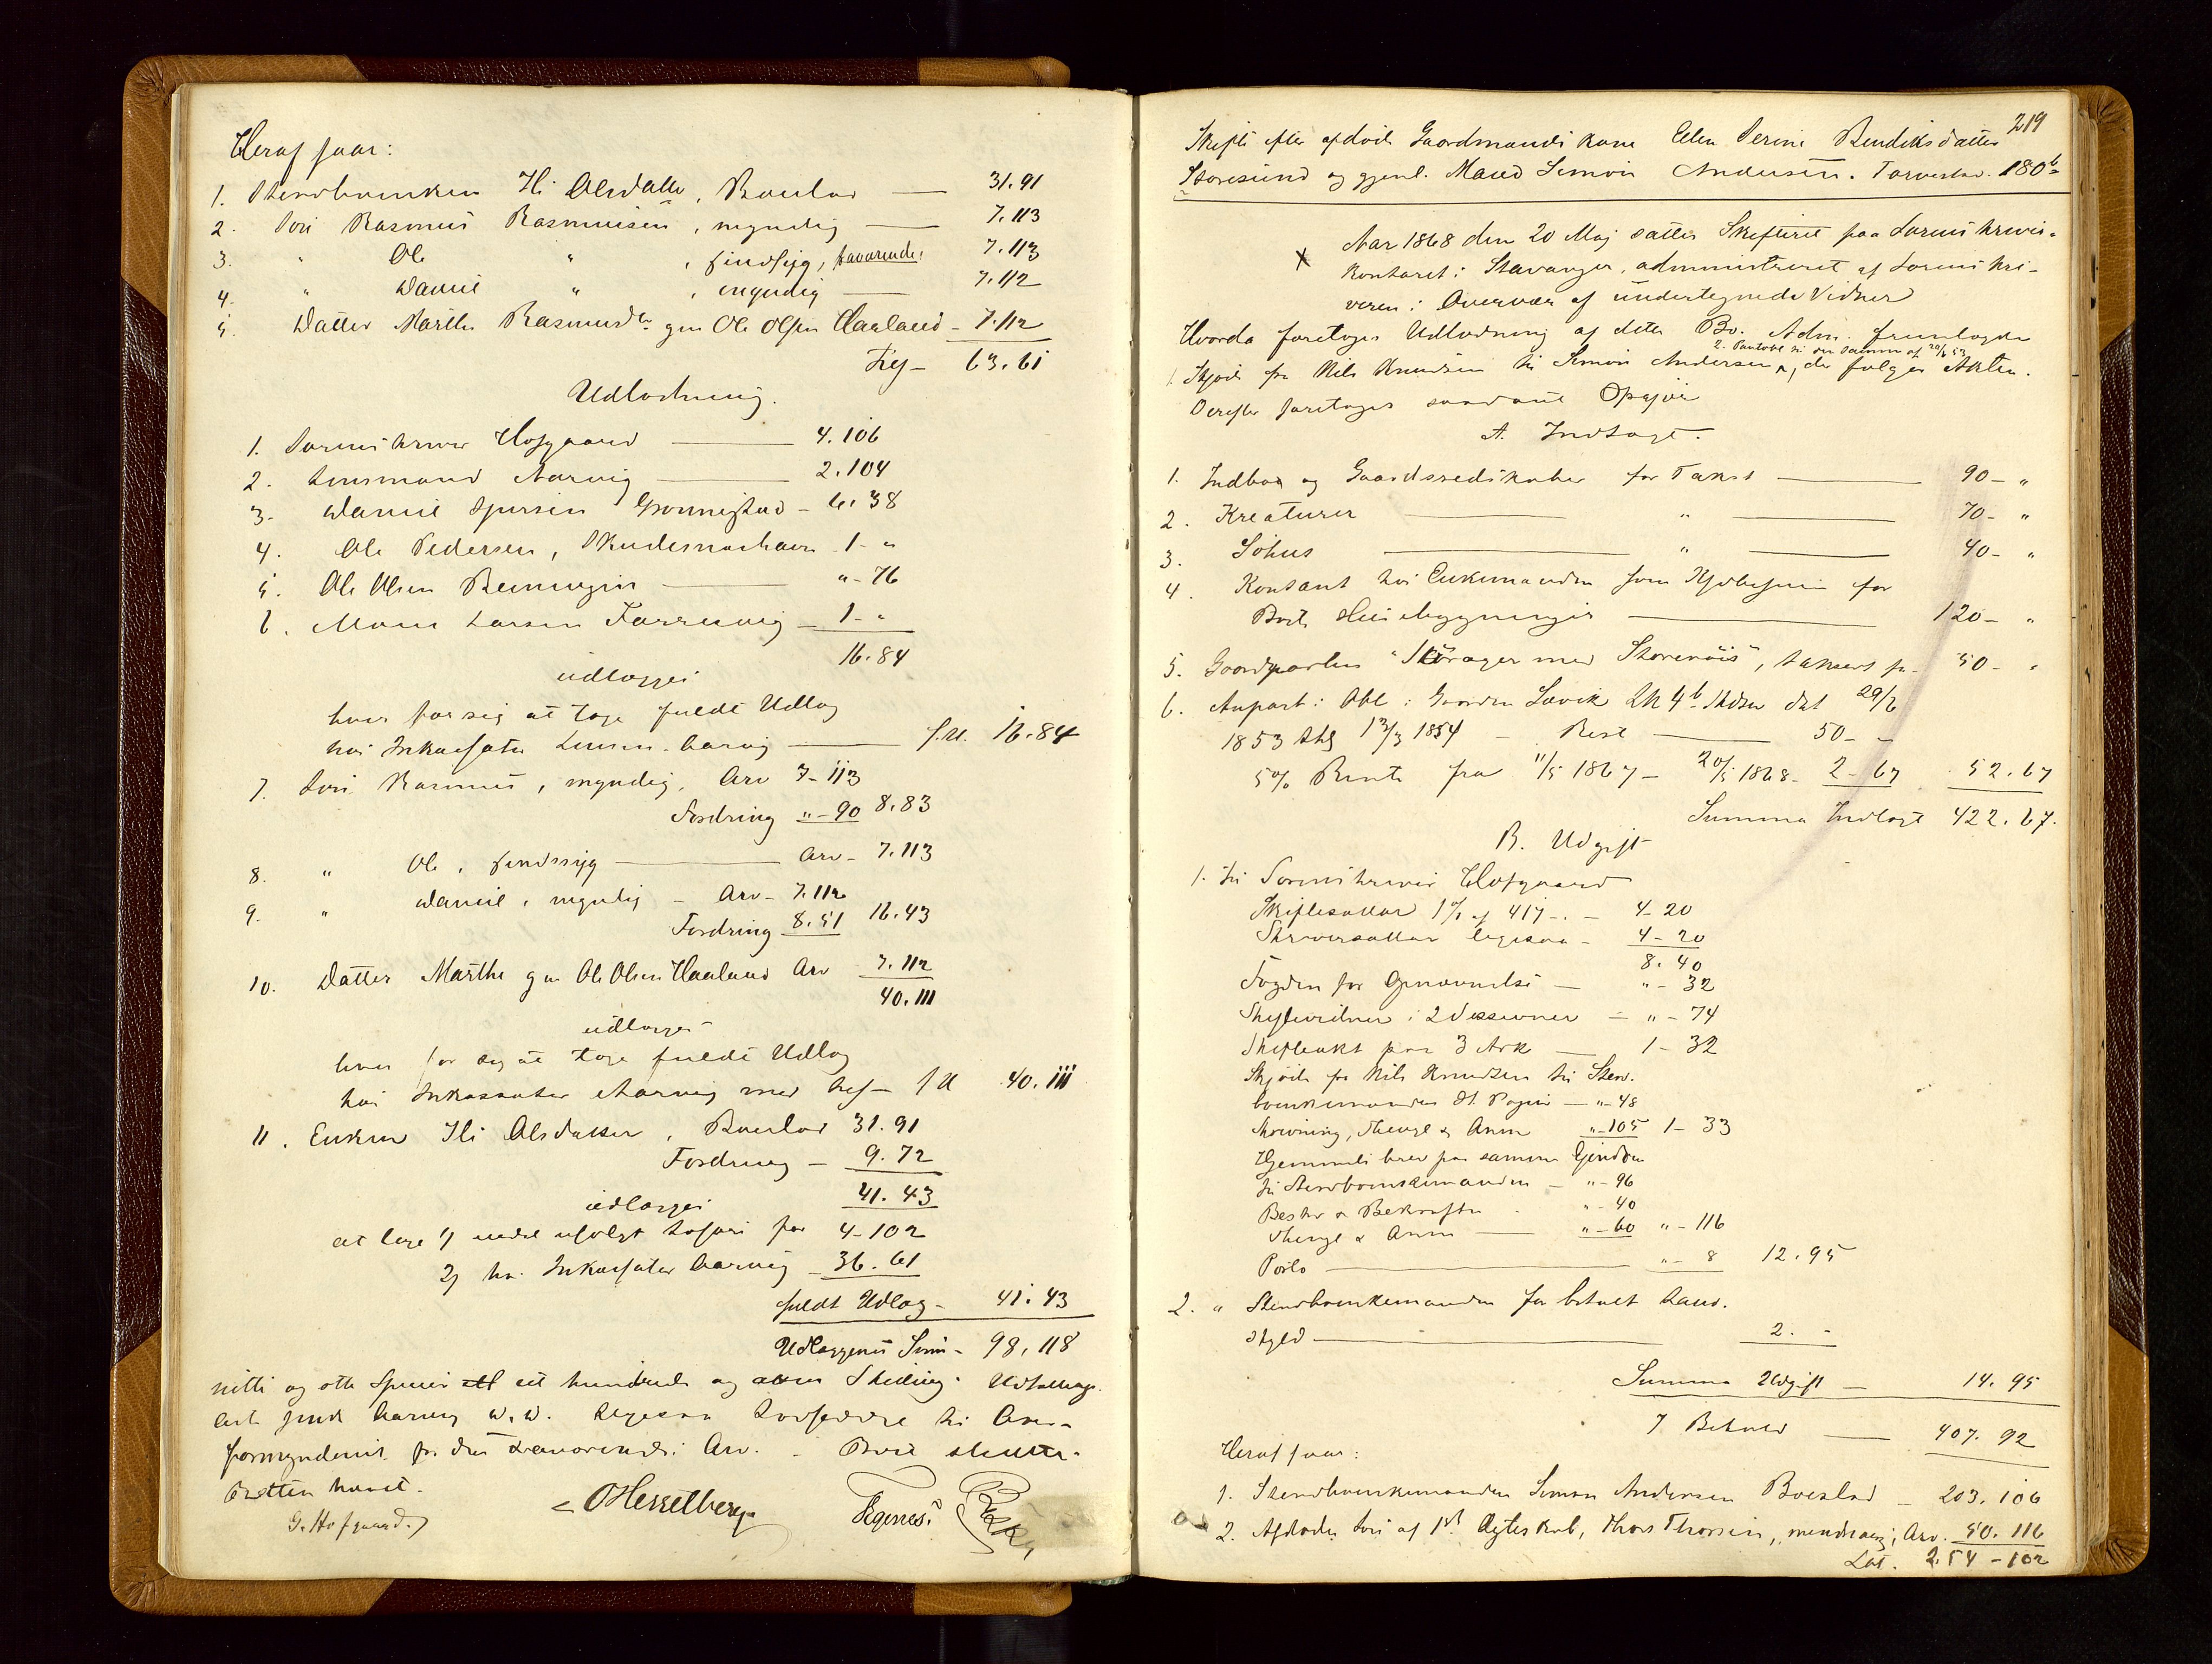 Heraf faar:
1. Ili Olsdatter, Boeslod — 31. 91
2. Søn Rasmus Rasmussen, myndig — 7. 113
3. " Ole " , sindssyg, — 7. 113
4. " Daniel " , myndig — 7. 112
5. Datter Marthe Rasmusdtr gm Ole Olsen Haaland — 7. 112
63. 61
Udlodning.
1. Sorenskriver Hofgaard — 4. 106
2. Lensmand Aarvig — 2. 104
3. Daniel — 6. 38
4. Ole Pedersen, Skudesneshavn 1 - "
5. Ole Olsen — " - 76
6. Mons Larsen — 1 - "
16. 84
udlægges
hver for sig at tage fuldt Udlæg
hos Inkassator Lensm. Aarvig — f. U. 16. 84
7. Søn Rasmus, myndig, Arv 7 - 113
Fordring " - 90 8. 83
8. " Ole, sindssyg — Arv - 7. 113
9. " Daniel, myndig - Arv - 7. 112
Fordring 8. 51 16. 43
10. Datter Marthe gm Ole Olsen Haaland Arv 7. 112
40. 111
udlægges
hver for sig at tage fuldt Udlæg
hos Inkassator Aarvig med — f U 40. 111
11. Enken Ili Olsdatter, Boeslod 31. 91
Fordring — 9. 72
udlægges 41. 43
at tage 1) usolgt Løsøre for 4 - 102
2) hos Inkassator Aarvig — 36. 61
fuldt Udlæg — 41. 43
Udlæggenes Sum — 98. 118
nitti og otte Species et hundrede og atten Skilling. Udtællings
Formynderiet for den fraværendes Arv. - Boet sluttet.
Retten hævet.
G. Hofgaard.
O Hesselberg
219
Skifte efter afdøde Gaardmands Kone Ellen Serine Bendiksdatter
Storesund og gjenl. Mand Simon Andersen. Torvestad. 180 b
× Aar 1868 den 20 Maj sattes Skifteret paa Sorenskriver-
kontoret i Stavanger, administreret af Sorenskri-
veren i Overvær af undertegnede Vidner
Hvorda foretoges Udlodning af dette Bo. Adm. fremlagde
2. Pantobl. til den samme af 20/6 53
1. Skjøde fra Nils Knudsen til Simon Andersen, der følger Akten.
Derefter foretoges saadant Opgjør
A. Indtægt.
1. Indbo og Gaardsredskaber for Takst — 90 - "
2. Kreaturer — " — 70 - "
3. Søhus — " — 40 - "
4. Kontant hos Enkemanden som Kjøbesum for
Boets Husebygninger — 120 - "
5. Gaardparten " Storager med Storenøis", takseret for 50 - "
6. Anpart i Obl. i Gaarden Søvik 4 b dat 29/6
1853 13/3 1854 - Rest — 50 - "
5 % Rente fra 11/5 1867 — 20/5 1868 - 2 - 67 52. 67
Summa Indtægt 422. 67.
B. Udgift
1. til Sorenskriver Hofgaard
Skiftesallar 1 % af 417 - 4 - 20
Skriversallar ligesaa - 4 - 20
8. 40
Fogden for Opnævnelse — " - 32
Skiftevidner i 2 Sessioner — " - 74
Skifteakt paa 3 Ark — 1 - 32
Skjøde fra Nils Knudsen til Sterv-
boenkemanden St. Papir — " - 48
Skrivning, Thingl. & Anm " - 105 1 - 33
Hjemmelsbrev paa samme Ejendom
til Stervboenkemanden — " - 96
Beskr. & Bekræft. - " - 40
Thingl. & Anm — " - 60 " - 116
Porto — " - 8 12. 95
2. " Stervboenkemanden for betalt Land-
skyld — 2. -
Summa Udgift — 14. 95
I Behold — 407. 92
Heraf faar:
1. Stervboenkemanden Simon Andersen Boeslod — 203. 106
2. Afdødes Søn af 1ste Ægteskab, Thor Thorsen, mindreaarig, Arv. 50. 116
Lat. 254 - 102